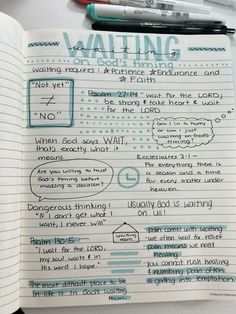 WAITING
on God's timing
waiting requires : ★Patience ★Endurance and
★Faith
"Not yet"
≠
"NO"
Psalm 27:14 - "wait for the LORD;
be strong & take heart & wait
for the LORD.
Am I in a hurry
or am I just
waiting on God's
timing?
When God says WAIT,
that's exactly what it
means.
Ecclesiastes 3:1 -
For everything there is
a season and a time
for every matter under
heaven.
Are you willing to trust
God's timing before
making a decision?
Dangerous thinking:
"If I don't get what I
want, I never will"
usually God is waiting
on us!
Psalm 130:5
"I wait for the LORD,
my soul waits & in
His word I hope."
waiting
room
pain comes with waiting
we often wait for relief
pain means we need
healing
you cannot rush healing
& numbing pain often
is giving into temptation
The most difficult place to be
in life is in God's waiting
room.